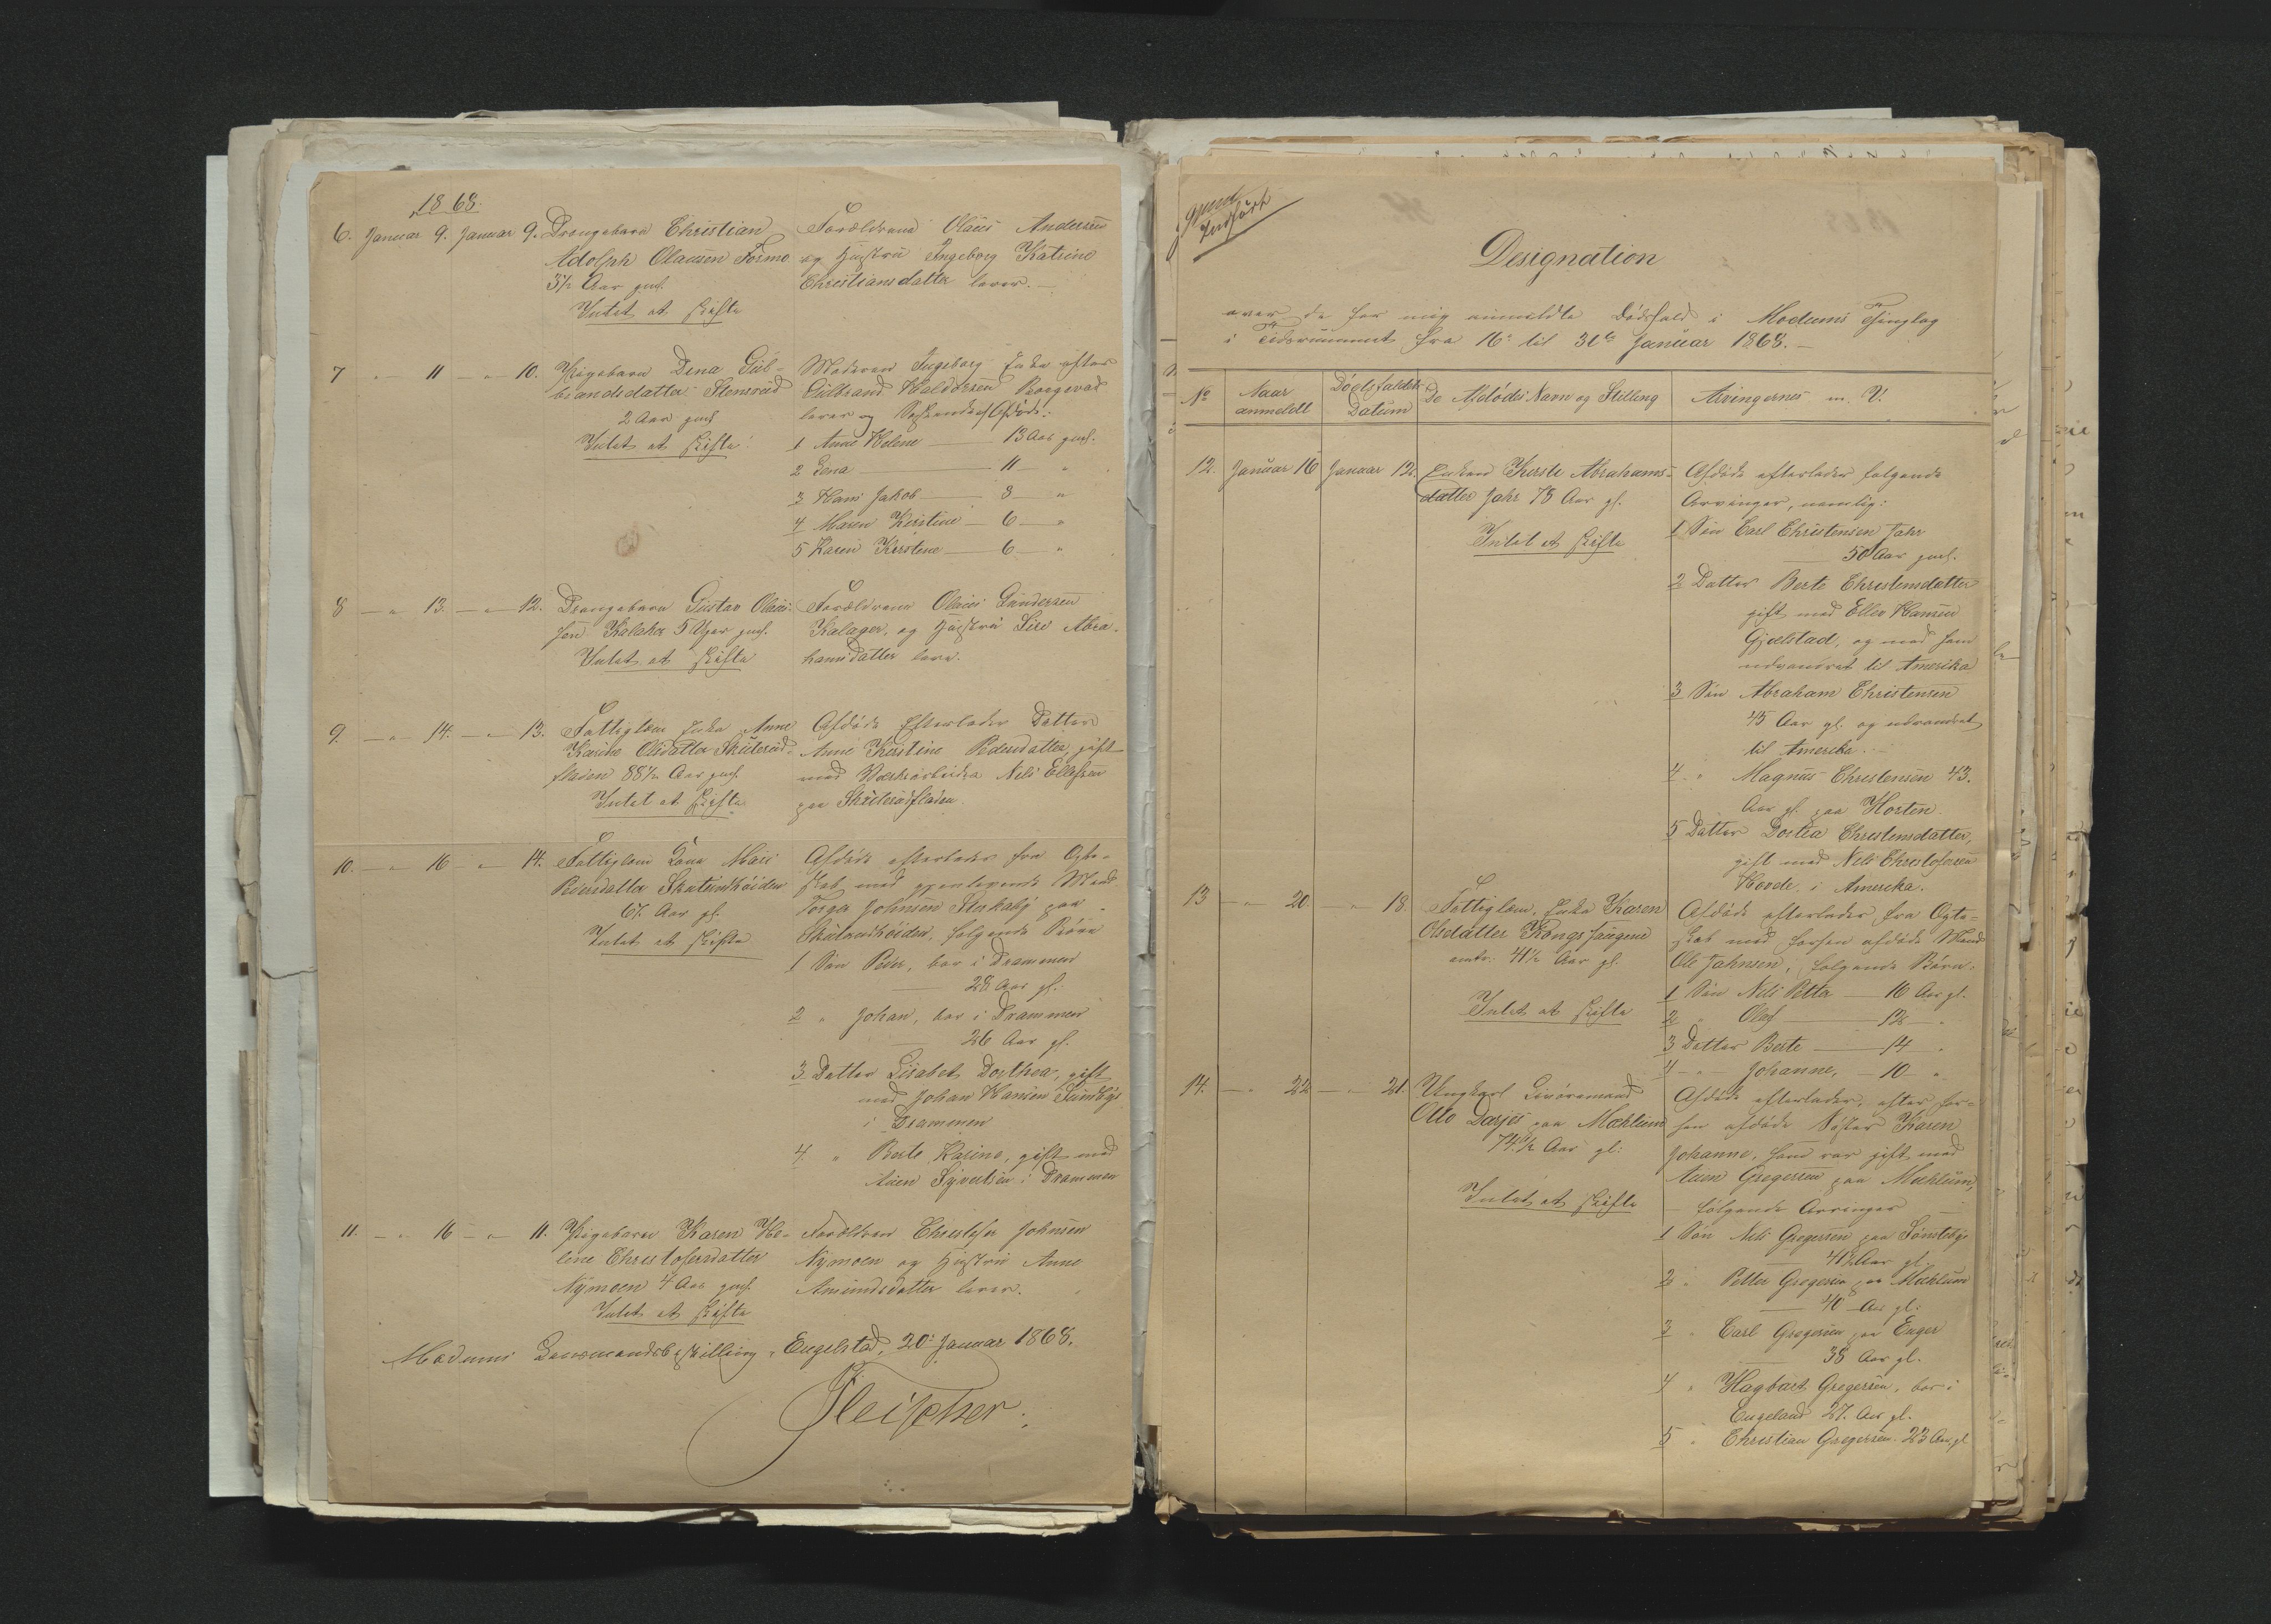 1868.
6. Januar 9. Januar 9. Drengebarn Christian Forældrene Olaus Andersen
Adolph Olaussen Formo og Hustru Ingeborg Katrine
3½ Aar gml. Christiansdatter lever.
Intet at skifte
7 " 11 " 10. Pigebarn Dina Gul- Moderen Ingeborg Enke efter
brandsdatter Stensrud Gulbrand Haldorsen
2 Aar gml lever og Afdøde:
Intet at skifte 1 Anne Helene 13 Aar gml.
2 Lena 11 "
3 Hans Jakob 3 "
4 Maren Kirstine 6 "
5 Karen Kirstine 6 "
8 " 13. " 12. Drengebarn Gustav Olaus- Forældrene Olaus Gundersen
sen Kalager 5 Uger gml. Kalager, og Hustru Siri Abra-
Intet at skifte hamsdatter leve.
9. " 14. " 13. Fattiglem Enke Anne Afdøde efterlader Datter
Karine Olsdatter Skuterud- Anne Kirstine Pedersdatter, gift
fladen 88½ Aar gml. med Værksarbeider Nils Ellefsen
Intet at skifte paa Skuterudfladen.
10. " 16 " 14. Fattiglem Kone Mari Afdøde efterlader fra Ægte-
Pedersdatter skab med gjenlevende Mand
67 Aar gl. Torger Johnsen paa
Intet at skifte følgende Børn
1 Søn Peder, bor i Drammen
28 Aar gl.
2 " Johan, bor i Drammen
26 Aar gl.
3 Datter Lisabet Dorthea, gift
med Johan Hansen Sundby
i Drammen
4. " Berte Karine, gift med
Sivertsen i Drammen
11. " 16 " 11. Pigebarn Karen He- Forældrene Christofer Johnsen
line Christofersdatter Nymoen og Hustru Anne
Nymoen 4 Aar gml. Amundsdatter lever.
Intet at skifte
Modums Lensmandsbestilling, Engelstad, 20de Januar 1868.
Fleischer.
Indført
Designation
over de for mig anmeldte Dødsfald i Modums Thinglag
i Tidsrummet fra 16de til 31te Januar 1868.
No Naar anmeldt Dødsfaldets Datum De Afdødes Navn og Stilling Arvingernes m. V.
12. Januar 16 Januar 12. Enken Kirsti Abrahams- Afdøde efterlader følgende
datter Jahr 78 Aar gl. Arvinger, nemlig:
Intet at skifte 1 Søn Carl Christensen Jahr
50 Aar gml.
2 Datter Berte Christensdatter
gift med Ellev Hansen
Gjælstad, og med ham
udvandret til Amerika
3 Søn Abraham Christensen
45 Aar gl. og udvandret
til Amerika.
4. " Magnus Christensen 43.
Aar gl. paa Horten.
5 Datter Dortea Christensdatter,
gift med Nils Christofersen
Hovde i Amerika.
13 " 20. " 18. Fattiglem, Enke Karen Afdøde efterlader fra Ægte-
Olsdatter Kongssaugene skab med forhen afdøde Mand
omtr. 41½ Aar gl. Ole Jahnsen, følgende Børn:
Intet at skifte 1 Søn Nils Petter 16 Aar gl.
2 " Olaf 12 "
3 Datter Berte 14 "
4 " Johanne, 10 "
14. " 22 " 21. Ungkarl Livøremand Afdøde efterlader, efter for-
Otto Darjes paa Mæhlum hen afdøde Søster Karen
74½ Aar gl. Johanne, som var gift med
Intet at skifte Gregersen paa Mæhlum,
følgende Arvinger
1 Søn Nils Gregersen paa Sønsteby
Aar gl.
2 " Petter Gregersen paa Mæhlum
40 Aar gl.
3 " Carl Gregersen paa Enger
38 Aar gl.
4 " Hagbart Gregersen, bor i
Engeland 27. Aar gl.
5 " Christian Gregersen 23 Aar gl